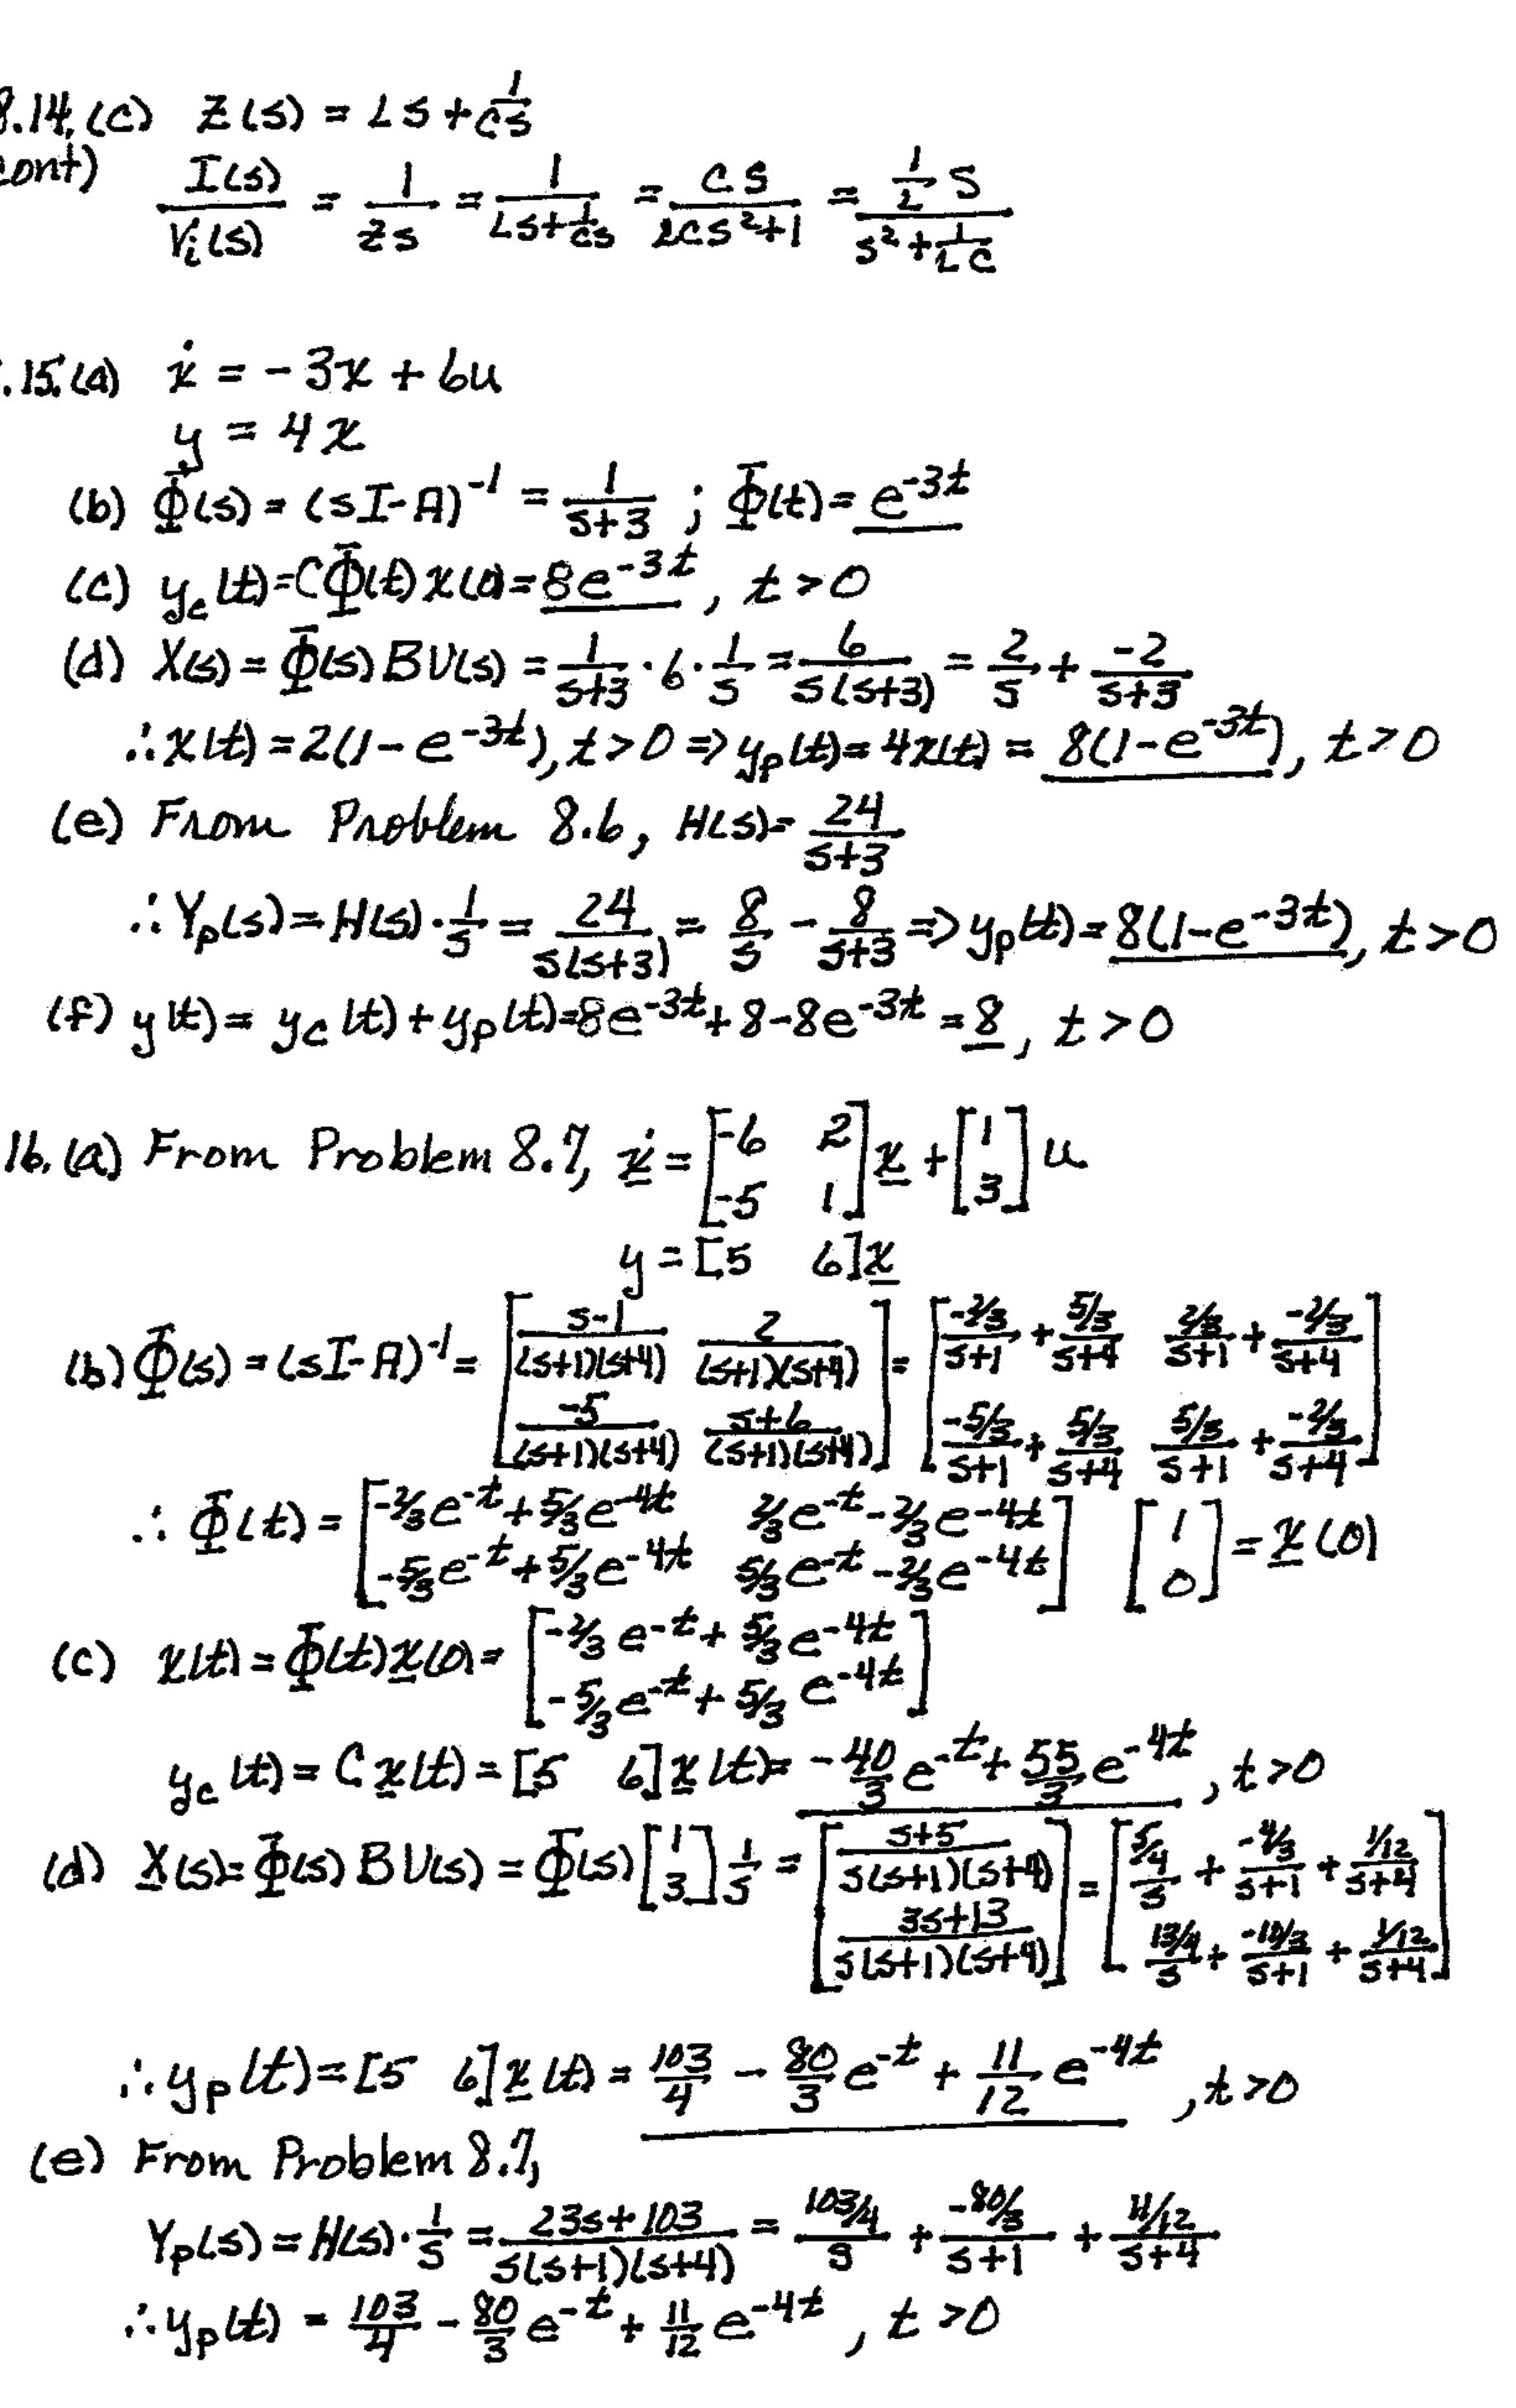 8.14.(c) Z(s) = Ls + 1/Cs
cont) I(s)/Vi(s) = 1/Zs = 1/(Ls+1/Cs) = Cs/(LCs²+1) = (1/L s)/(s²+1/LC)
.15.(a) ẋ = -3x + 6u
y = 4x
(b) Φ(s) = (sI-A)⁻¹ = 1/(s+3) ; Φ(t) = e^-3t
(c) yc(t) = CΦ(t)x(0) = 8e^-3t, t>0
(d) X(s) = Φ(s)BU(s) = 1/(s+3) · 6 · 1/s = 6/(s(s+3)) = 2/s + -2/(s+3)
∴ x(t) = 2(1-e^-3t), t>0 ⇒ yp(t) = 4x(t) = 8(1-e^-3t), t>0
(e) From Problem 8.6, H(s) = 24/(s+3)
∴ Yp(s) = H(s)·1/s = 24/(s(s+3)) = 8/s - 8/(s+3) ⇒ yp(t) = 8(1-e^-3t), t>0
(f) y(t) = yc(t) + yp(t) = 8e^-3t + 8 - 8e^-3t = 8, t>0
16.(a) From Problem 8.7, ẋ = [-6 2; -5 1]x + [1; 3]u
y = [5 6]x
(b) Φ(s) = (sI-A)⁻¹ = [(s-1)/((s+1)(s+4)) 2/((s+1)(s+4)); -5/((s+1)(s+4)) (s+6)/((s+1)(s+4))] = [(-2/3)/(s+1) + (5/3)/(s+4) (2/3)/(s+1) + (-2/3)/(s+4); (-5/3)/(s+1) + (5/3)/(s+4) (5/3)/(s+1) + (-2/3)/(s+4)]
∴ Φ(t) = [-2/3e^-t + 5/3e^-4t 2/3e^-t - 2/3e^-4t; -5/3e^-t + 5/3e^-4t 5/3e^-t - 2/3e^-4t] [1; 0] = x(0)
(c) x(t) = Φ(t)x(0) = [-2/3e^-t + 5/3e^-4t; -5/3e^-t + 5/3e^-4t]
yc(t) = Cx(t) = [5 6]x(t) = -40/3 e^-t + 55/3 e^-4t, t>0
(d) X(s) = Φ(s)BU(s) = Φ(s)[1; 3]1/s = [(s+5)/(s(s+1)(s+4)); (3s+13)/(s(s+1)(s+4))] = [(5/4)/s + (-4/3)/(s+1) + (1/12)/(s+4); (13/4)/s + (-10/3)/(s+1) + (1/12)/(s+4)]
∴ yp(t) = [5 6]x(t) = 103/4 - 80/3 e^-t + 11/12 e^-4t, t>0
(e) From Problem 8.7,
Yp(s) = H(s)·1/s = (23s+103)/(s(s+1)(s+4)) = (103/4)/s + (-80/3)/(s+1) + (11/12)/(s+4)
∴ yp(t) = 103/4 - 80/3 e^-t + 11/12 e^-4t, t>0